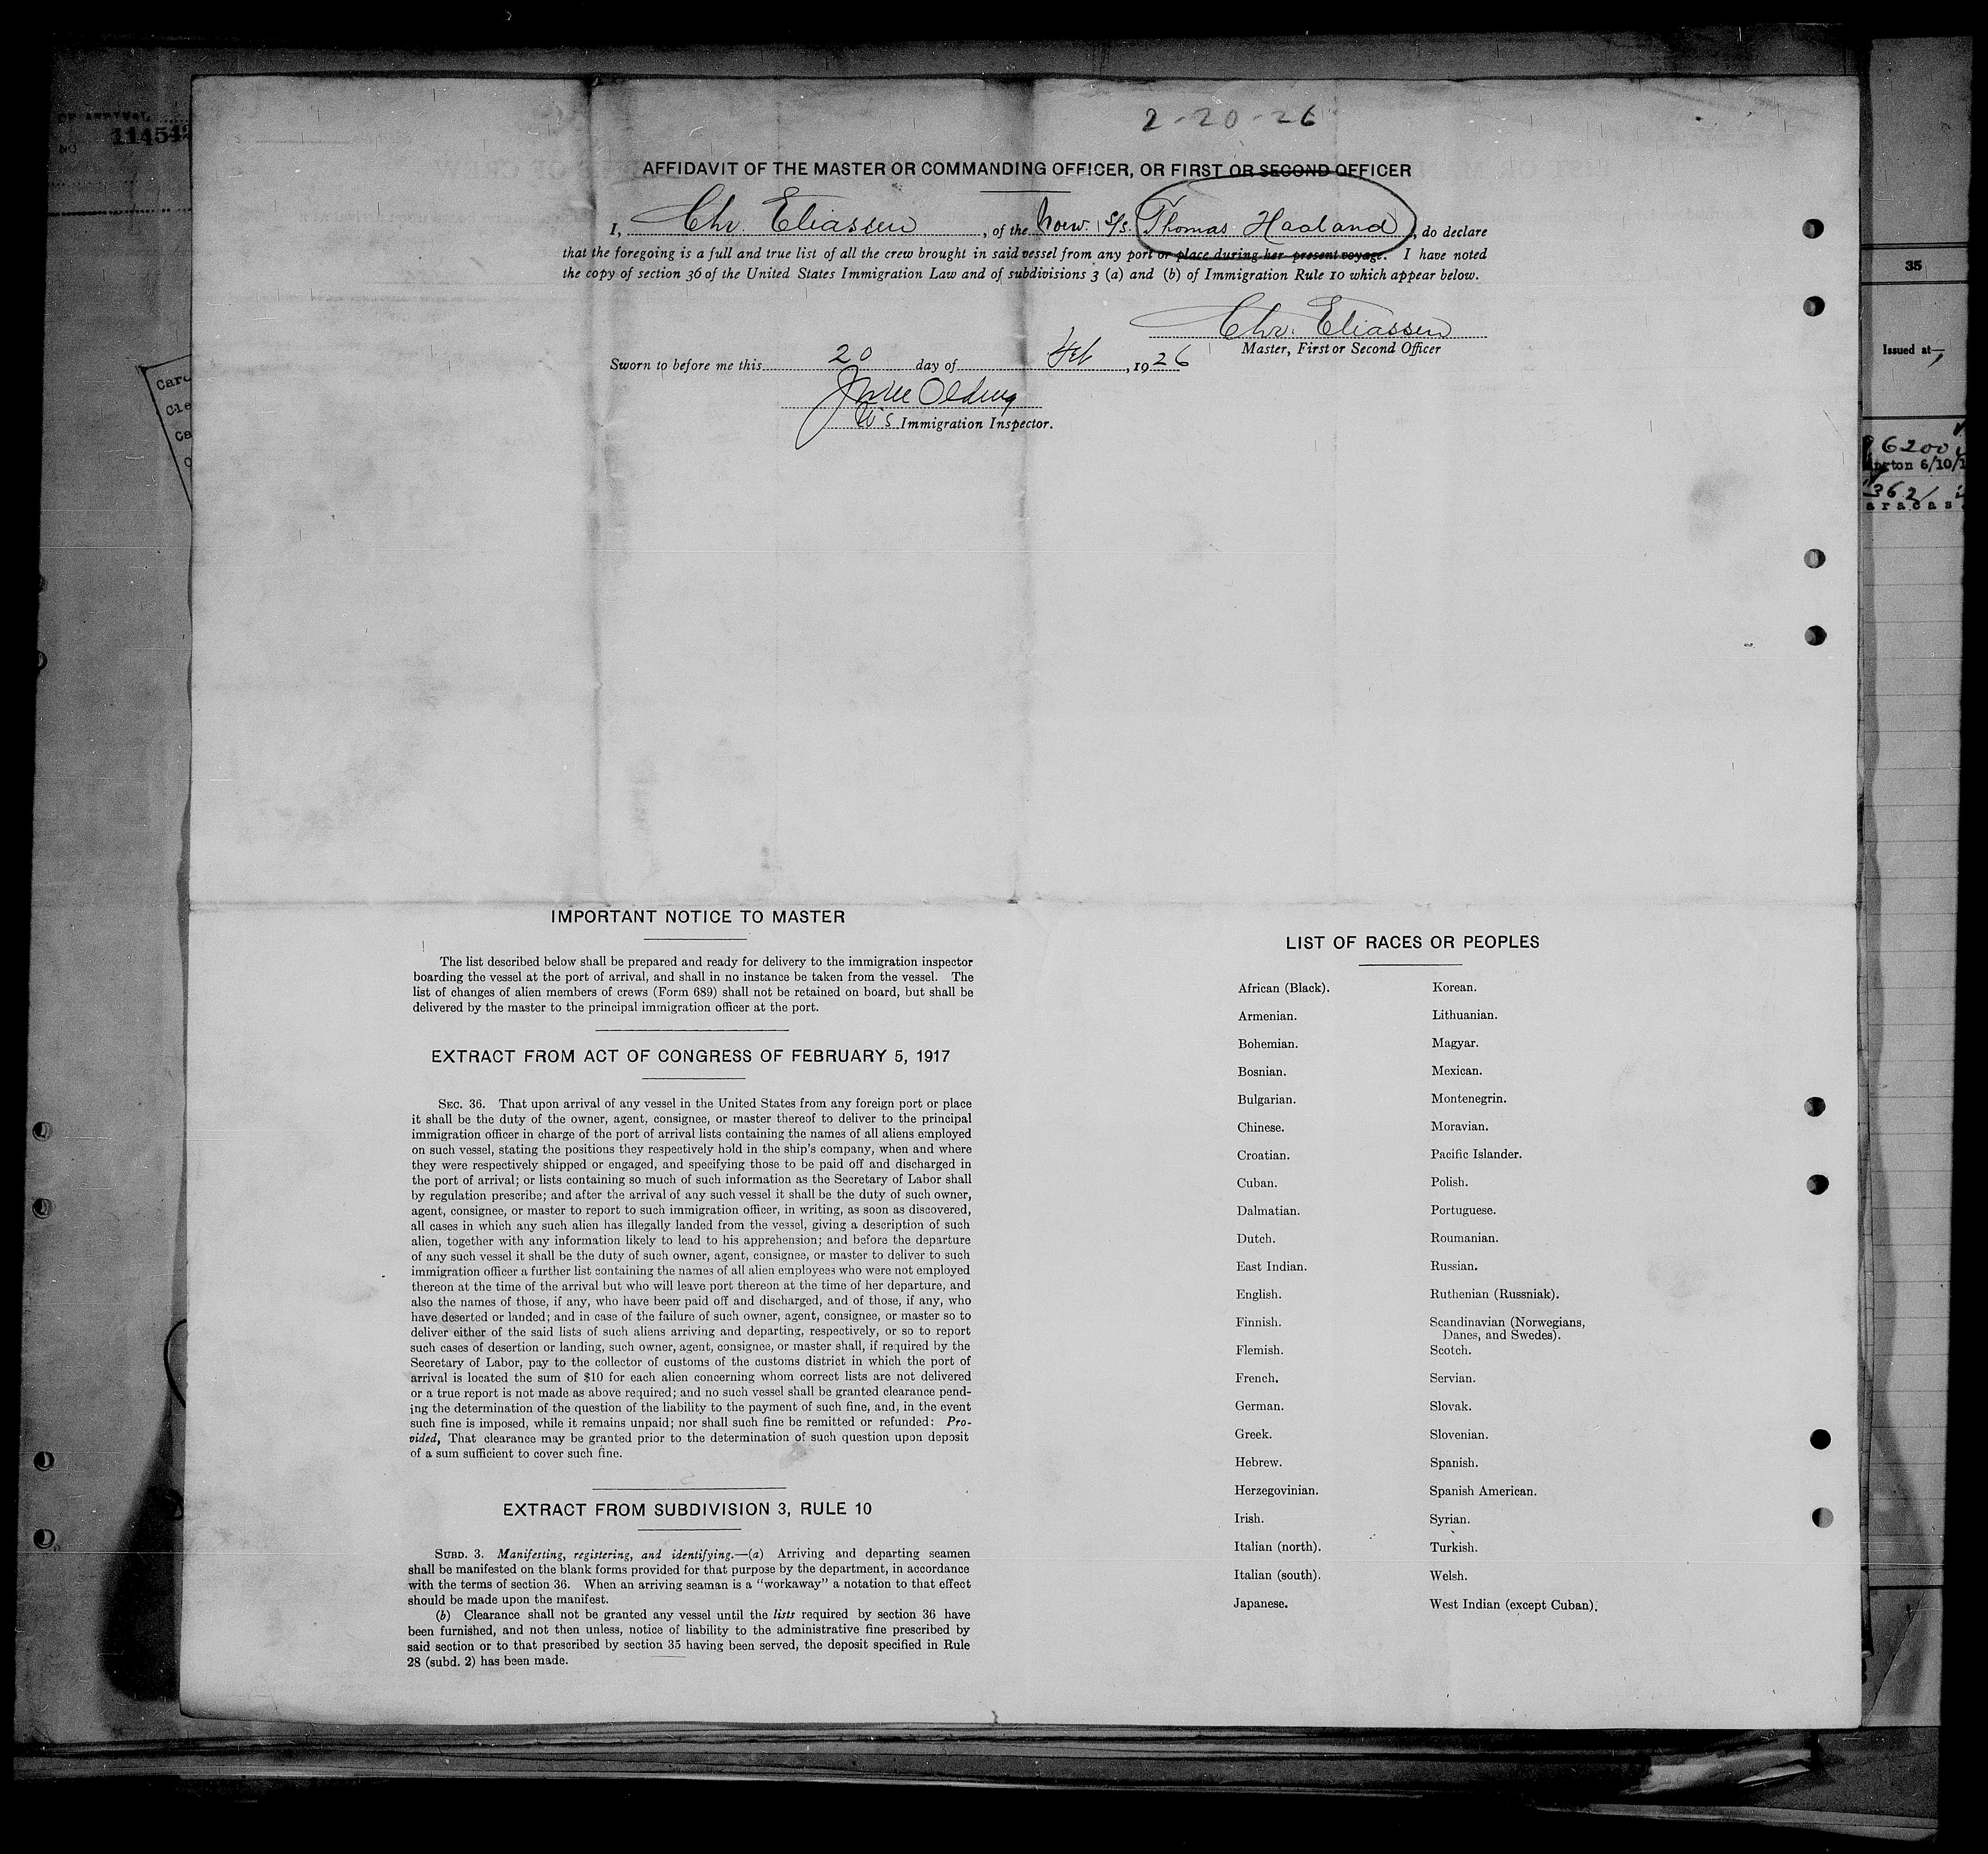 2-20-26
AFFIDAVIT OF THE MASTER OR COMMANDING OFFICER, OR FIRST OR SECOND OFFICER
I, Chr. Eliassen, of the Norw. S/S. Thomas Haaland, do declare
that the foregoing is a full and true list of all the crew brought in said vessel from any port or place during her present voyage. I have noted
the copy of section 36 of the United States Immigration Law and of subdivisions 3 (a) and (b) of Immigration Rule 10 which appear below.
Chr. Eliassen
Master, First or Second Officer
Sworn to before me this 20 day of Feb, 1926
Immigration Inspector.
IMPORTANT NOTICE TO MASTER
The list described below shall be prepared and ready for delivery to the immigration inspector
boarding the vessel at the port of arrival, and shall in no instance be taken from the vessel. The
list of changes of alien members of crews (Form 689) shall not be retained on board, but shall be
delivered by the master to the principal immigration officer at the port.
EXTRACT FROM ACT OF CONGRESS OF FEBRUARY 5, 1917
SEC. 36. That upon arrival of any vessel in the United States from any foreign port or place
it shall be the duty of the owner, agent, consignee, or master thereof to deliver to the principal
immigration officer in charge of the port of arrival lists containing the names of all aliens employed
on such vessel, stating the positions they respectively hold in the ship's company, when and where
they were respectively shipped or engaged, and specifying those to be paid off and discharged in
the port of arrival; or lists containing so much of such information as the Secretary of Labor shall
by regulation prescribe; and after the arrival of any such vessel it shall be the duty of such owner,
agent, consignee, or master to report to such immigration officer, in writing, as soon as discovered,
all cases in which any such alien has illegally landed from the vessel, giving a description of such
alien, together with any information likely to lead to his apprehension; and before the departure
of any such vessel it shall be the duty of such owner, agent, consignee, or master to deliver to such
immigration officer a further list containing the names of all alien employees who were not employed
thereon at the time of the arrival but who will leave port thereon at the time of her departure, and
also the names of those, if any, who have been paid off and discharged, and of those, if any, who
have deserted or landed; and in case of the failure of such owner, agent, consignee, or master so to
deliver either of the said lists of such aliens arriving and departing, respectively, or so to report
such cases of desertion or landing, such owner, agent, consignee, or master shall, if required by the
Secretary of Labor, pay to the collector of customs of the customs district in which the port of
arrival is located the sum of $10 for each alien concerning whom correct lists are not delivered
or a true report is not made as above required; and no such vessel shall be granted clearance pend-
ing the determination of the question of the liability to the payment of such fine, and, in the event
such fine is imposed, while it remains unpaid; nor shall such fine be remitted or refunded: Pro-
vided, That clearance may be granted prior to the determination of such question upon deposit
of a sum sufficient to cover such fine.
EXTRACT FROM SUBDIVISION 3, RULE 10
SUBD. 3. Manifesting, registering, and identifying.—(a) Arriving and departing seamen
shall be manifested on the blank forms provided for that purpose by the department, in accordance
with the terms of section 36. When an arriving seaman is a "workaway" a notation to that effect
should be made upon the manifest.
(b) Clearance shall not be granted any vessel until the lists required by section 36 have
been furnished, and not then unless, notice of liability to the administrative fine prescribed by
said section or to that prescribed by section 35 having been served, the deposit specified in Rule
28 (subd. 2) has been made.
LIST OF RACES OR PEOPLES
African (Black).
Armenian.
Bohemian.
Bosnian.
Bulgarian.
Chinese.
Croatian.
Cuban.
Dalmatian.
Dutch.
East Indian.
English.
Finnish.
Flemish.
French.
German.
Greek.
Hebrew.
Herzegovinian.
Irish.
Italian (north).
Italian (south).
Japanese.
Korean.
Lithuanian.
Magyar.
Mexican.
Montenegrin.
Moravian.
Pacific Islander.
Polish.
Portuguese.
Roumanian.
Russian.
Ruthenian (Russniak).
Scandinavian (Norwegians,
Danes, and Swedes).
Scotch.
Servian.
Slovak.
Slovenian.
Spanish.
Spanish American.
Syrian.
Turkish.
Welsh.
West Indian (except Cuban).
35
Issued at—
6200
6/10/
362